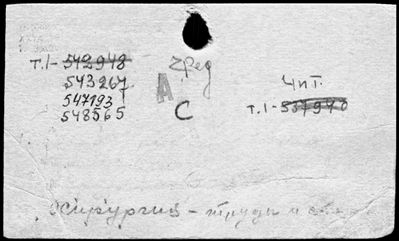 т.1-542948
543267
547193
548565
А
С
Чит.
т.1-537940
Хирургия - труды и